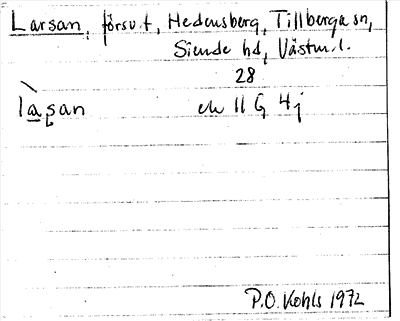 Larsan, försv.t, Hedensberg, Tillberga sn,
Siende hd, Västm.l.
28
l̀a̠s̩an ek 11 G 4j
P.O. Kohls 1972